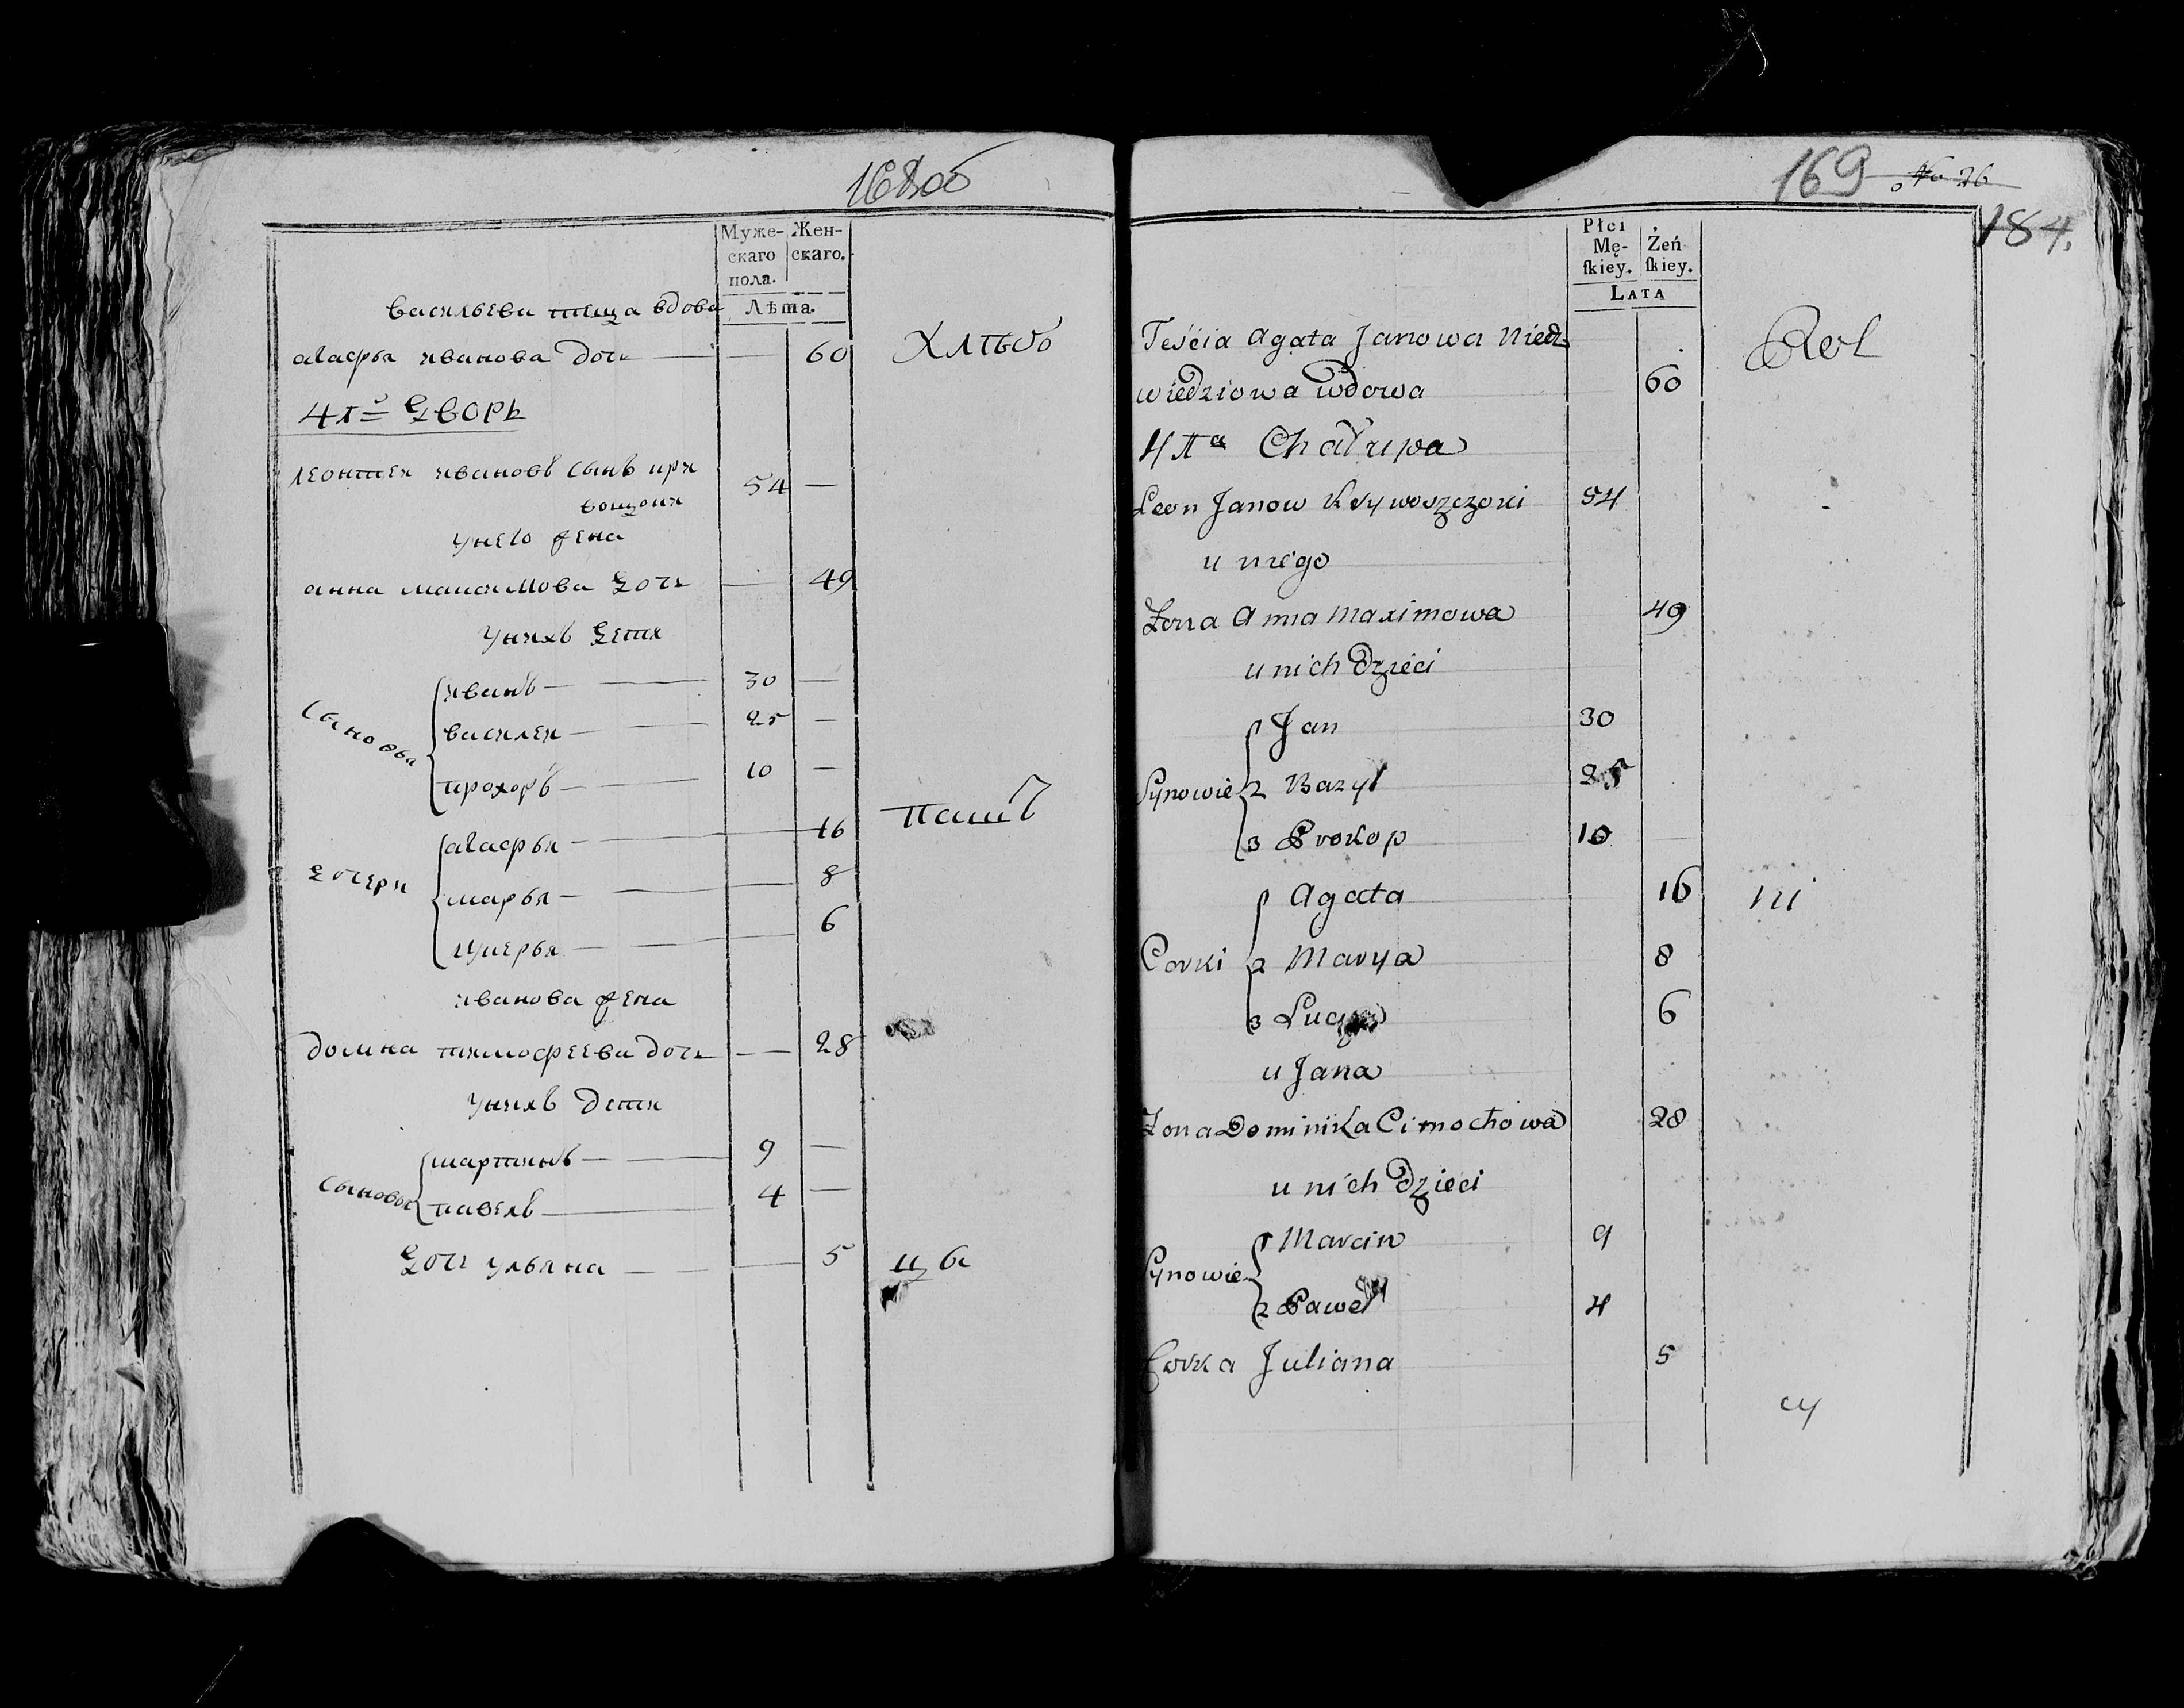 168об
Муже-
скаго
пола.
Жен-
скаго.
Лѣта.
васильева теща вдова
агафья иванова дочь — — 60
Хлѣбо
4й дворъ
леонтей ивановъ сынъ кри
вощокя 54 —
у него жена
анна максимова дочь — 49
у нихъ дети
сыновья
иванъ — 30 —
василей — 25 —
прохоръ — 10 —
дочери
агафья — 16
пашъ
марья — 8
лукерья — 6
иванова жена
домна тимофеева дочь — 28
у нихъ дети
сыновья
мартинъ — 9 —
павелъ — 4 —
дочь ульяна — — 5
цы
169 No 26
184.
Płci
Mę-
ſkiey.
Żeń
ſkiey.
Lata
Teścia Agata Janowa Niedz-
wiedziowa wdowa 60
Rol
4ta Chałupa
Leon Janow Krywoszczoki 54
u niego
Żona Anna Maximowa 49
u nich dzieci
Synowie
1 Jan 30
2 Bazyl 25
3 Prokop 10
Corki
1 Agata 16
ni
2 Marya 8
3 Lucya 6
u Jana
Żona Dominika Cimochowa 28
u nich dzieci
Synowie
1 Marcin 9
2 Paweł 4
Corka Juliana 5
cy